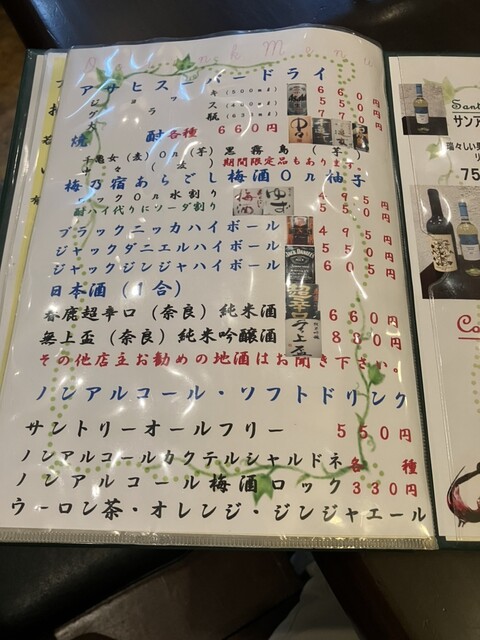 Drink Menu
アサヒスーパードライ
ジョッキ(500ml) 660円
グラス(400ml) 570円
瓶(633ml) 円
焼酎各種 660円
千亀女(麦)Or(芋) 黒霧島(芋)
期間限定品もあります
梅乃宿あらごし梅酒Or柚子
ロックOr水割り 495円
酎ハイ代りにソーダ割り 円
ブラックニッカハイボール 495円
ジャックダニエルハイボール 550円
ジャックジンジャハイボール 605円
日本酒(1合)
春鹿超辛口(奈良)純米酒 660円
無上盃(奈良)純米吟醸酒 880円
その他店主お勧めの地酒はお聞き下さい。
ノンアルコール・ソフトドリンク
サントリーオールフリー 550円
ノンアルコールカクテルシャルドネ各種
ノンアルコール梅酒ロック330円
ウーロン茶・オレンジ・ジンジャエール
Sant
サンア
75